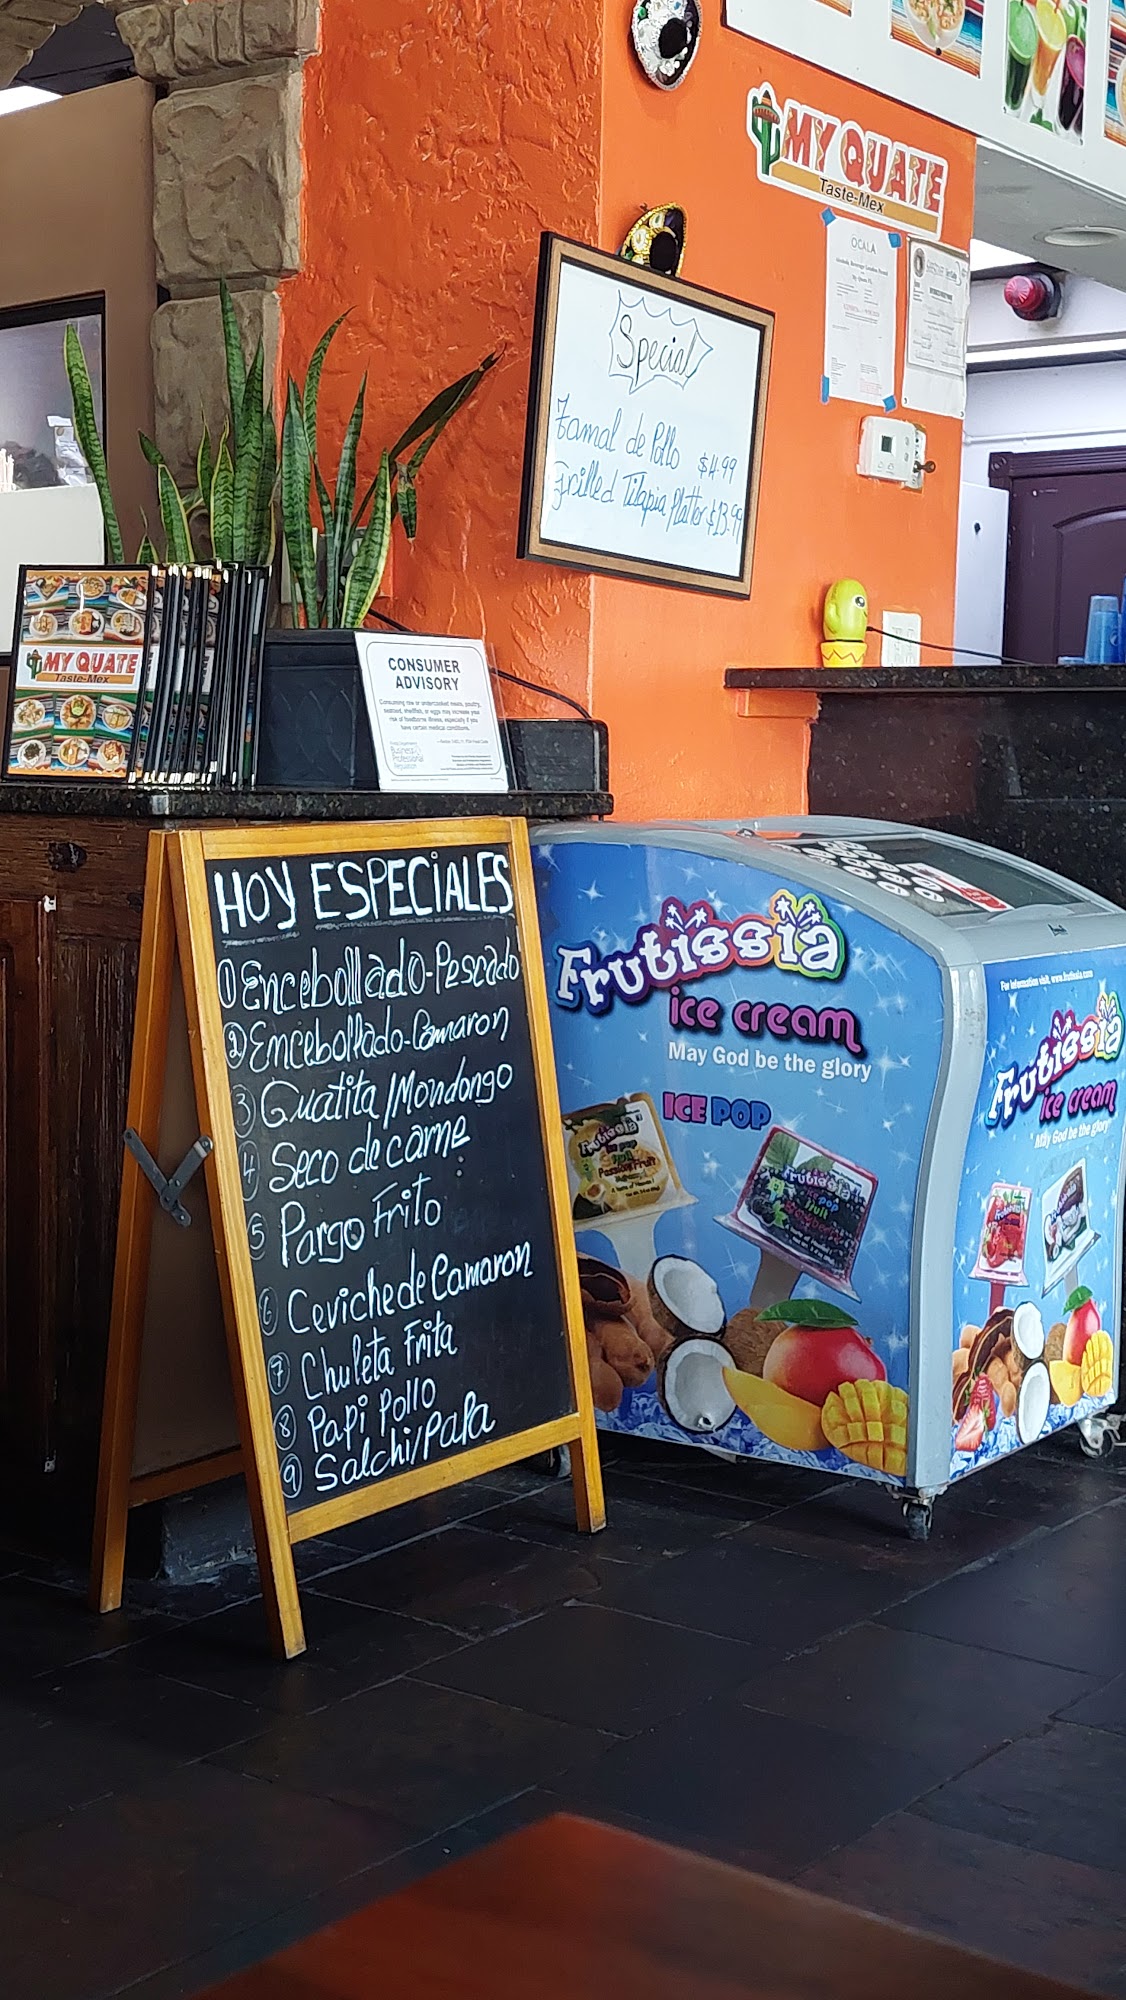 MY QUATE
Taste-Mex
OCALA
Special
Tamal de Pollo $4.99
Grilled Tilapia Platter $13.99
MY QUATE
Taste-Mex
CONSUMER
ADVISORY
Consuming raw or undercooked meats, poultry,
seafood, shellfish, or eggs may increase your
risk of foodborne illness, especially if you
have certain medical conditions.
HOY ESPECIALES
1 Encebollado-Pescado
2 Encebollado-Camaron
3 Guatita/Mondongo
4 Seco de carne
5 Pargo Frito
6 Ceviche de Camaron
7 Chuleta Frita
8 Papi Pollo
9 Salchi/PaPa
Frutissia
ice cream
May God be the glory
ICE POP
Frutissia
ice pop
Passion Fruit
Frutissia
For information visit, www.frutissia.com
Frutissia
ice cream
May God be the glory